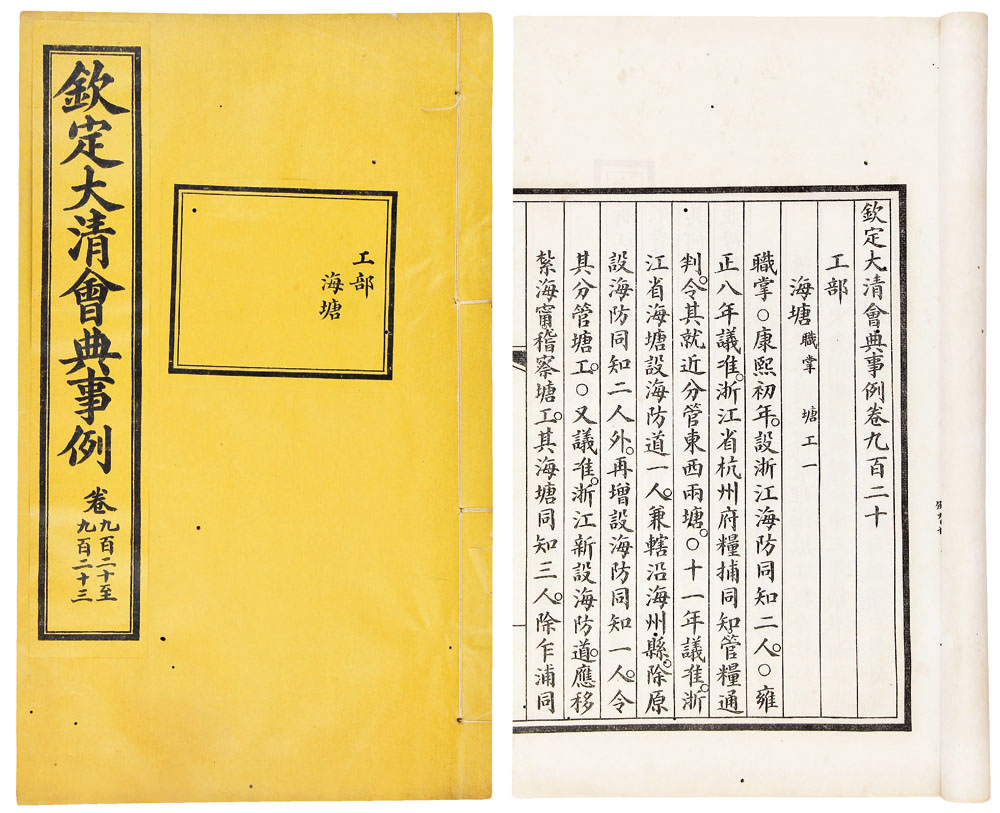 欽定大清會典事例 卷九百二十至九百二十三
工部
海塘
欽定大清會典事例卷九百二十
工部
海塘 職掌 塘工一
職掌○康熙初年。設浙江海防同知二人。○雍
正八年議准。浙江省杭州府糧捕同知管糧通
判。令其就近分管東西兩塘。○十一年議准。浙
江省海塘設海防道一人。兼轄沿海州縣。除原
設海防同知二人外。再增設海防同知一人。令
其分管塘工。○又議准。浙江新設海防道。應移
紮海甯。稽察塘工。其海塘同知三人。除乍浦同